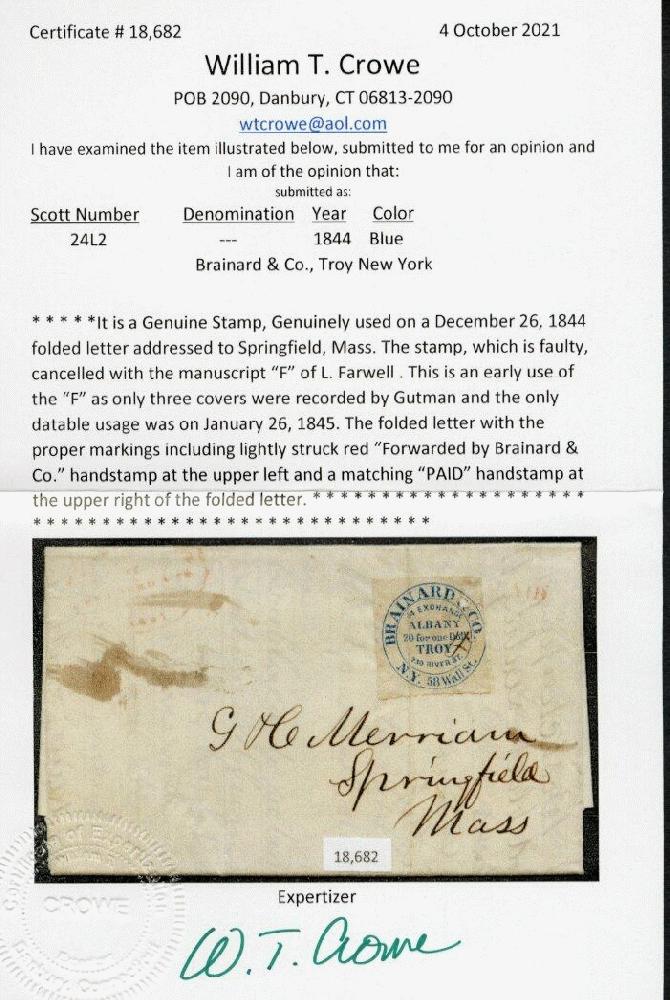 Certificate # 18,682 4 October 2021
William T. Crowe
POB 2090, Danbury, CT 06813-2090
wtcrowe@aol.com
I have examined the item illustrated below, submitted to me for an opinion and
I am of the opinion that:
submitted as:
Scott Number Denomination Year Color
24L2 --- 1844 Blue
Brainard & Co., Troy New York
* * * * *It is a Genuine Stamp, Genuinely used on a December 26, 1844
folded letter addressed to Springfield, Mass. The stamp, which is faulty,
cancelled with the manuscript “F” of L. Farwell . This is an early use of
the “F” as only three covers were recorded by Gutman and the only
datable usage was on January 26, 1845. The folded letter with the
proper markings including lightly struck red “Forwarded by Brainard &
Co.” handstamp at the upper left and a matching “PAID” handstamp at
the upper right of the folded letter. * * * * * * * * * * * * * * * * * * * *
* * * * * * * * * * * * * * * * * * * * * * * * * * * * *
BRAINARD & CO
EXCHANGE
ALBANY
20 for one Doll
TROY
230 RIVER ST.
N.Y. 58 Wall St.
G & C Merriam
Springfield
Mass
18,682
CROWE
Expertizer
W. T. Crowe